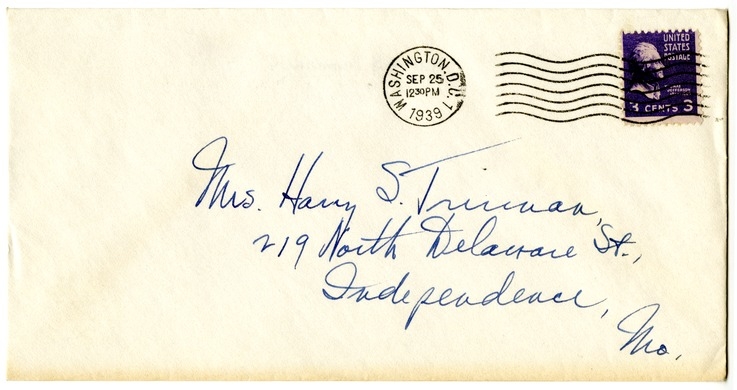 WASHINGTON, D.C. 1
SEP 25
12 30 PM
1939
UNITED
STATES
POSTAGE
3 CENTS 3
Mrs. Harry S. Truman,
219 North Delaware St.,
Independence,
Mo.